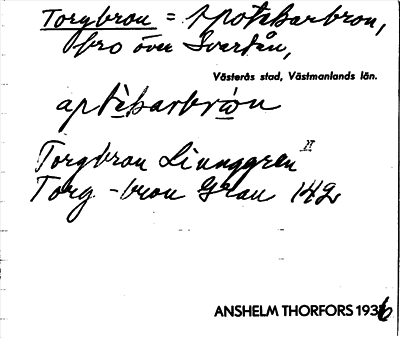 Torgbron = Apotekarbron,
bro över Svartån,
Västerås stad, Västmanlands län.
aptèkarbròn
Torgbron Linnggren II
Torg-bron Grau 142
ANSHELM THORFORS 1936